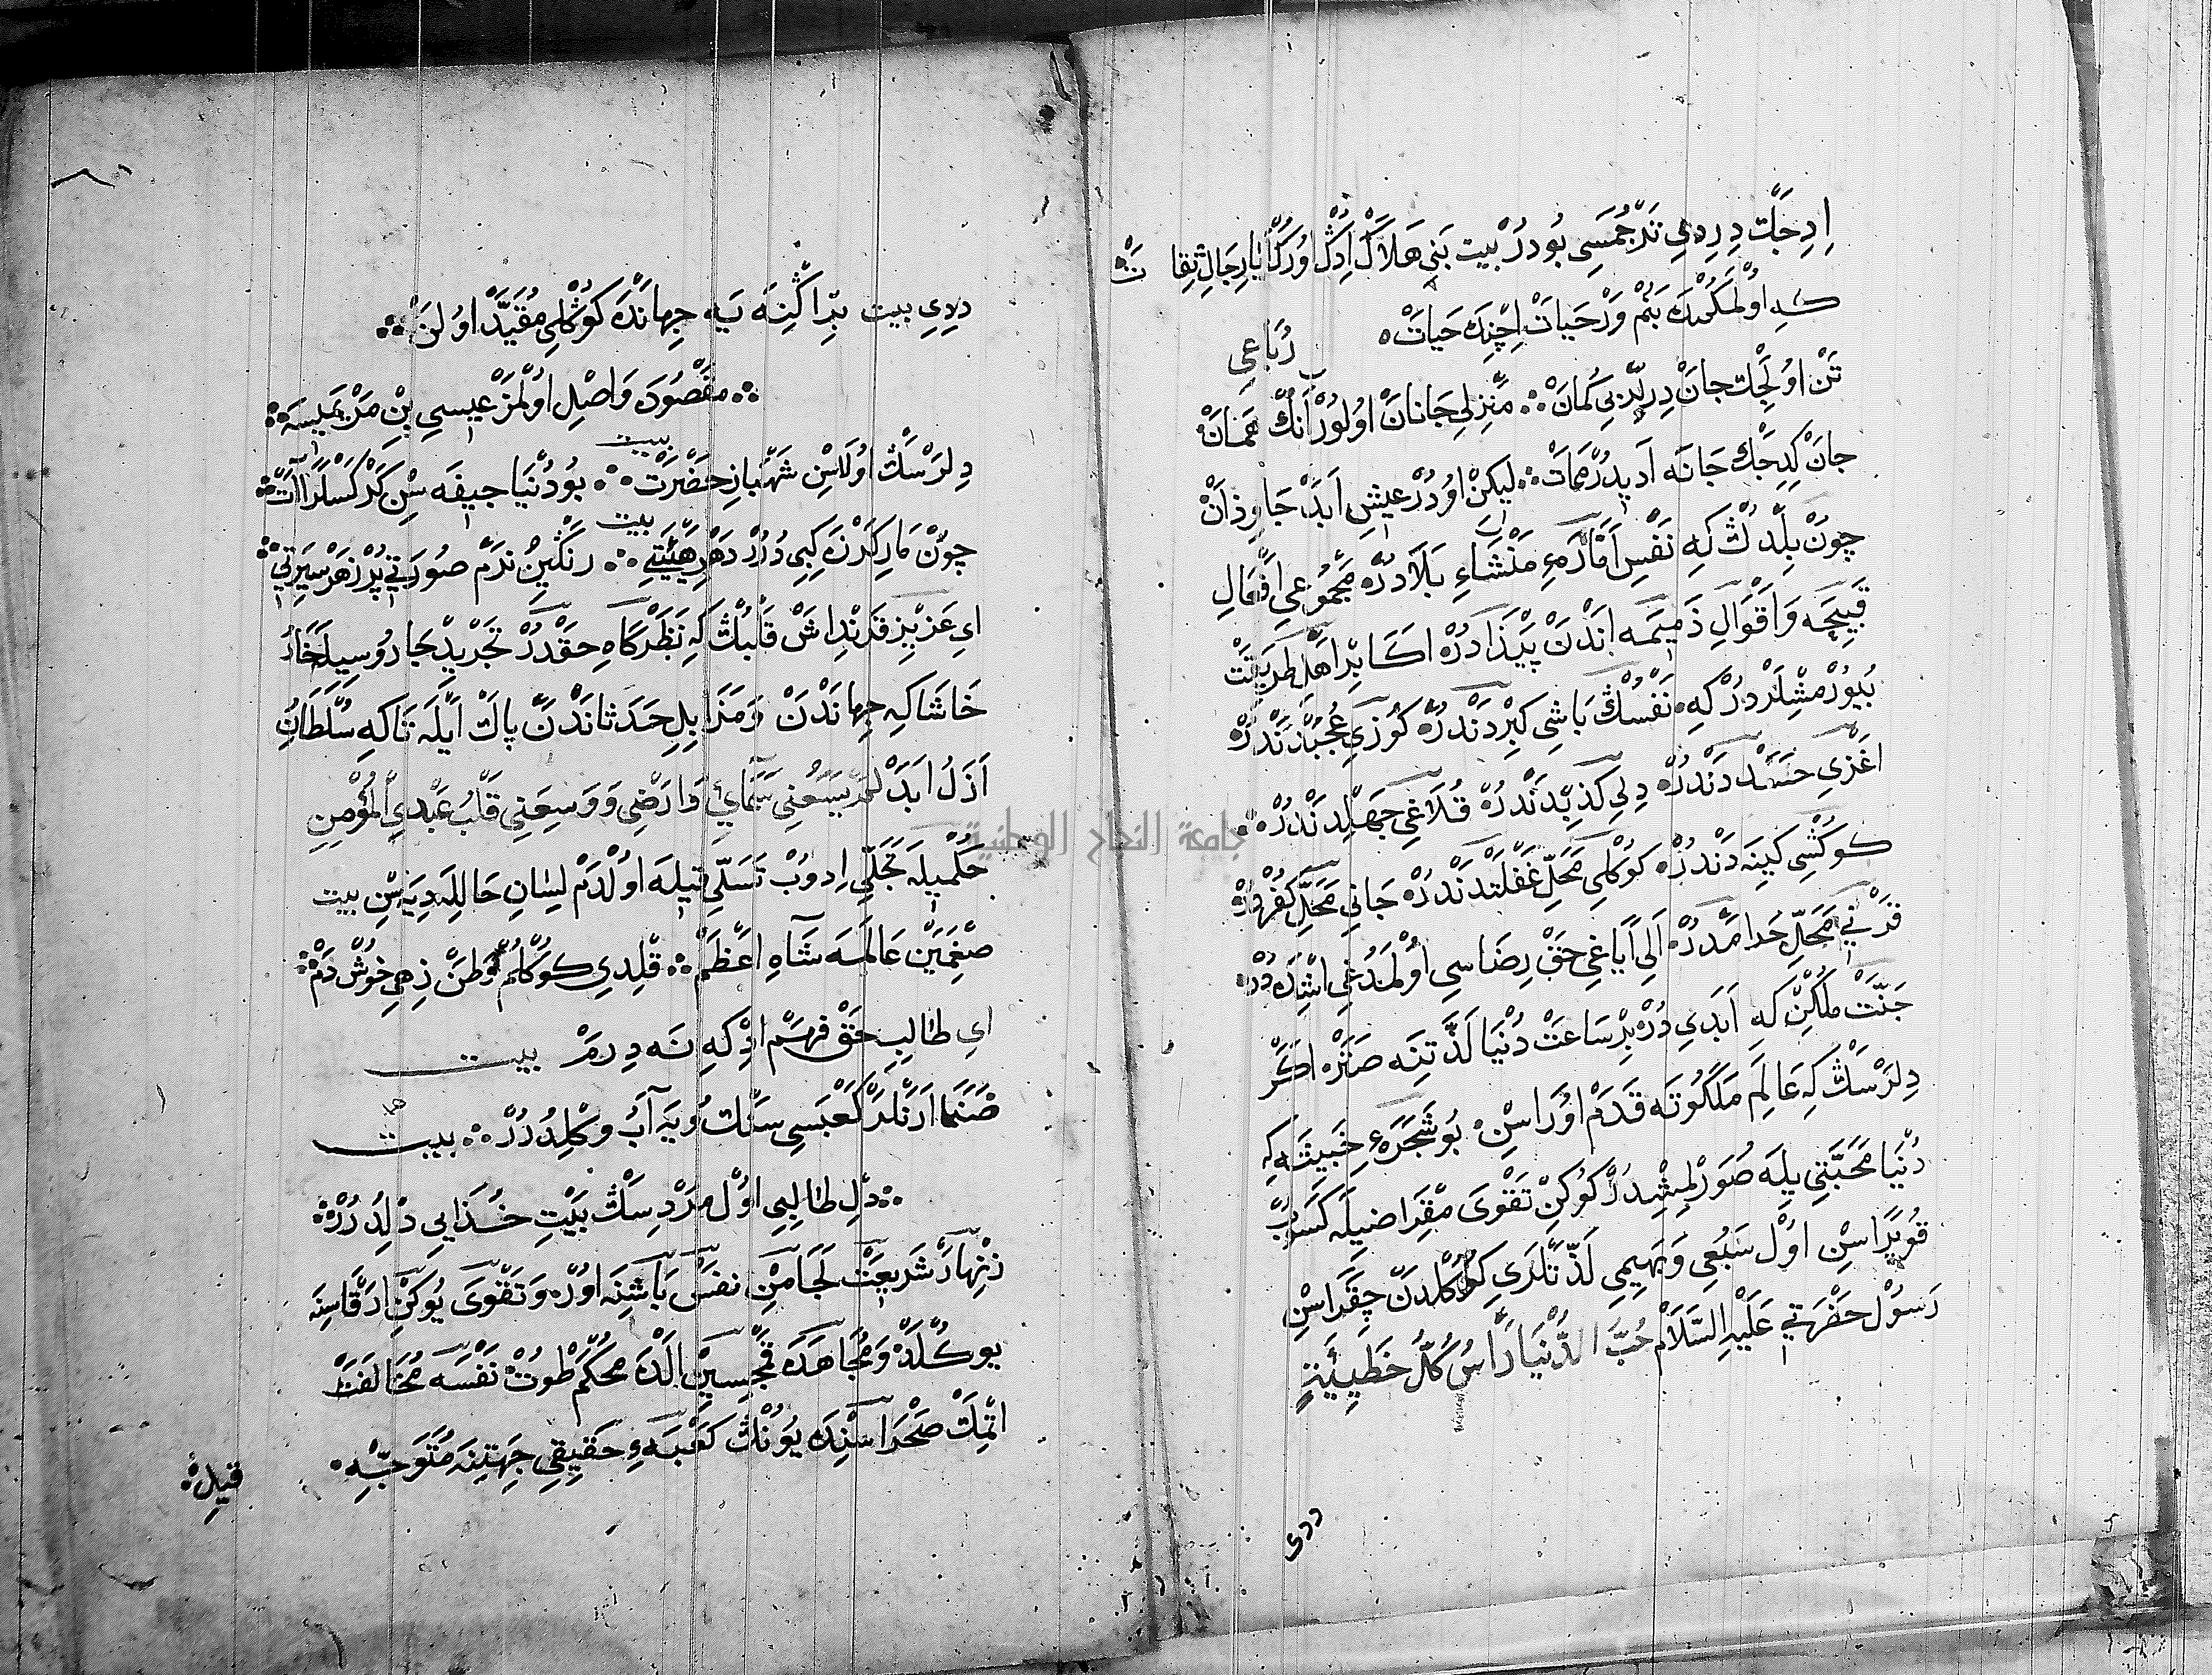 اِدِجَّك دِرِدِي تَرْجُمَسِى بُودُرْ بيت بَنِي هَلاَكْ اِدْكْ اُورَكْا يَارِجَالِ ثِقَاتْ
كه اُولْمَكْمِدَه بَنُمْ وَرْ حَيَاتْ اِچِنْدَه حَيَاتْ رُبَاعِى
تَنْ اُولِجَكْ جَانْ دِرِلِر بى كُمَانْ مَنْزِلِى جَانَانْ اُولُورْ اَنُكْ هَمَانْ
جَانْ كِدِجَكْ جَانَه اَدِيدُرْ مَمَاتْ لِيكِنْ اُودُرْ عَيْشِ اَبَدْ جَاوِذَانْ
چُونْ بِلْدُكْ كَه نَفْسِ اَمَّارَهءِ مَنْشَاءِ بَلاَدُرْ مَجْمُوعِ اَفْعَالِ
قَبِيحَه وَاَقْوَالِ ذَمِيمَه اَنْدَنْ پَيْذَادُرْ اَكَابِرِ اَهْلِ طَرِيقَتْ
بُيُورْمِشْلَرْدُرْ كَه نَفْسُكْ بَاشِى كِبِرْدَنْدُرْ كُوزِى عُجُبْدَنْدُرْ
اَغْزِى حَسَدْدَنْدُرْ دِلِى كَذِبْدَنْدُرْ قُلاَغِى جَهِلْدَنْدُرْ
كُوكْسِى كِينَه دَنْدُرْ كُوكْلِى مَحَلِّ غَفْلَتْدَنْدُرْ جَانِى مَحَلِّ كُفْرْدُرْ
قَرْنِي مَحَلِّ حَرَامْدُرْ اَلِى اَيَاغِى حَقْ رِضَاسِى اُولْمَدُغِى اِشْدَه دُرْ
جَنَّتْ مُلْكِنْ كَه اَبَدِى دُرْ بِرْ سَاعَتْ دُنْيَا لَذَّتِنَه صَتَرْ اَكَرْ
دِلَرْسَكْ كَه عَالَمِ مَلَكُوتَه قَدَمْ اُورَاسِنْ بُو شَجَرَهءِ خَبِيثَه كِه
دُنْيَا مَحَبَّتِى يِلَه صُوَرِلْمِشْدُرْ كُوكِنْ تَقْوَى مِقْرَاضِيلَه كَسُوبْ
قُوپَرَاسِنْ اُولْ سَبُعِى وَبَهِيمِى لَذَّتْلَرِى كُوكْلُكْدَنْ چِقَرَاسِنْ
رَسُولْ حَضْرَتِي عَلَيْهِ السَّلاَمْ حُبُّ الدُّنْيَا رَاْسُ كُلُّ خَطِيئَةٍ
ددى
دِدِى بيت بِرْ اِكْنَه يَه جِهَانْدَه كُوكْلِى مُقَيَّدْ اُولَنْ
مَقْصُودَه وَاصِلِ اُولْمَزْ عِيسِى بِنْ مَرْيَمَيْسَه
بيت
دِلَرْسَكْ اُولَاسِنْ شَهْبَازِ حَضْرَتْ بُو دُنْيَا جِيفَه سِنْ كَرْكَسْلَرَ آتْ
بيت
چُونْ مَارِ كَرْزَه كِبِى دُرُرْ دَهْرِ هَيْئَتِى رَنْكِينْ نَرْمْ صُورَتِي پُرْ زَهَرْ سِيرَتِي
اى عَزِيزِ قَرِنْدَاشْ قَلْبُكْ كِه نَظَرْكَاهِ حَقْدُرْ تَجْرِيدْ جَارُوسِيلَه خَارُ
خَاشَاكِ جِهَانْدَنْ وَمَزَابِلِ حَدَثَانْدَنْ پَاكْ اَيْلَه تَا كِه سُلْطَانِ
اَزَلُ اَبَدْ لَمْ يَسَعْنِي سَمَآئِي وَارَضِى وَوَسِعَنِى قَلْبُ عَبْدِي الْمُؤْمِنِ
حُكْمِيلَه تَجَلِّي اِدُوبْ تَسَلِّي قِيلَه اُولْدَمْ لِسَانِ حَاللَه دِيَه سِنْ بيت
صِغْمَيَنْ عَالَمَه شَاهِ اَعْظَمْ قِلْدِى كُوكْلُمْ وَطَنْ زِهِى خُوشْ دَمْ
اى طَالِبِ حَقْ فَهْمْ اِدْ كِه نَه دِرِمْ بيت
صَنْمَا اَرَنْلَرْ كَعْبَسِى سَنْكُ وَيَه آبُ وَكِلْدُرُرْ بيت
دِلْ طَالِبِى اُولْ مَرْدِسَكْ بَيْتِ خُذَايِي دِلْدُرُرْ
زِنْهَارْ شَرِيعَتْ لِجَامِنْ نَفْسْ بَاشِنَه اُورْ وَتَقْوَى يُوكِنْ اَرْقَاسِنَه
يُوكْلَه وَمُجَاهَدَه قَمْچِسِينْ اَلْدَه مُحْكَمْ طُوتْ نَفْسَه مُخَالَفَتْ
اِتْمَكْ صَحْرَاسِنْدَه يُوزُنْكْ كَعْبَهءِ حَقِيقِى جِهَتِنَه مُتَوَجِّهْ
قِيلْ
جامعة النجاح الوطنية